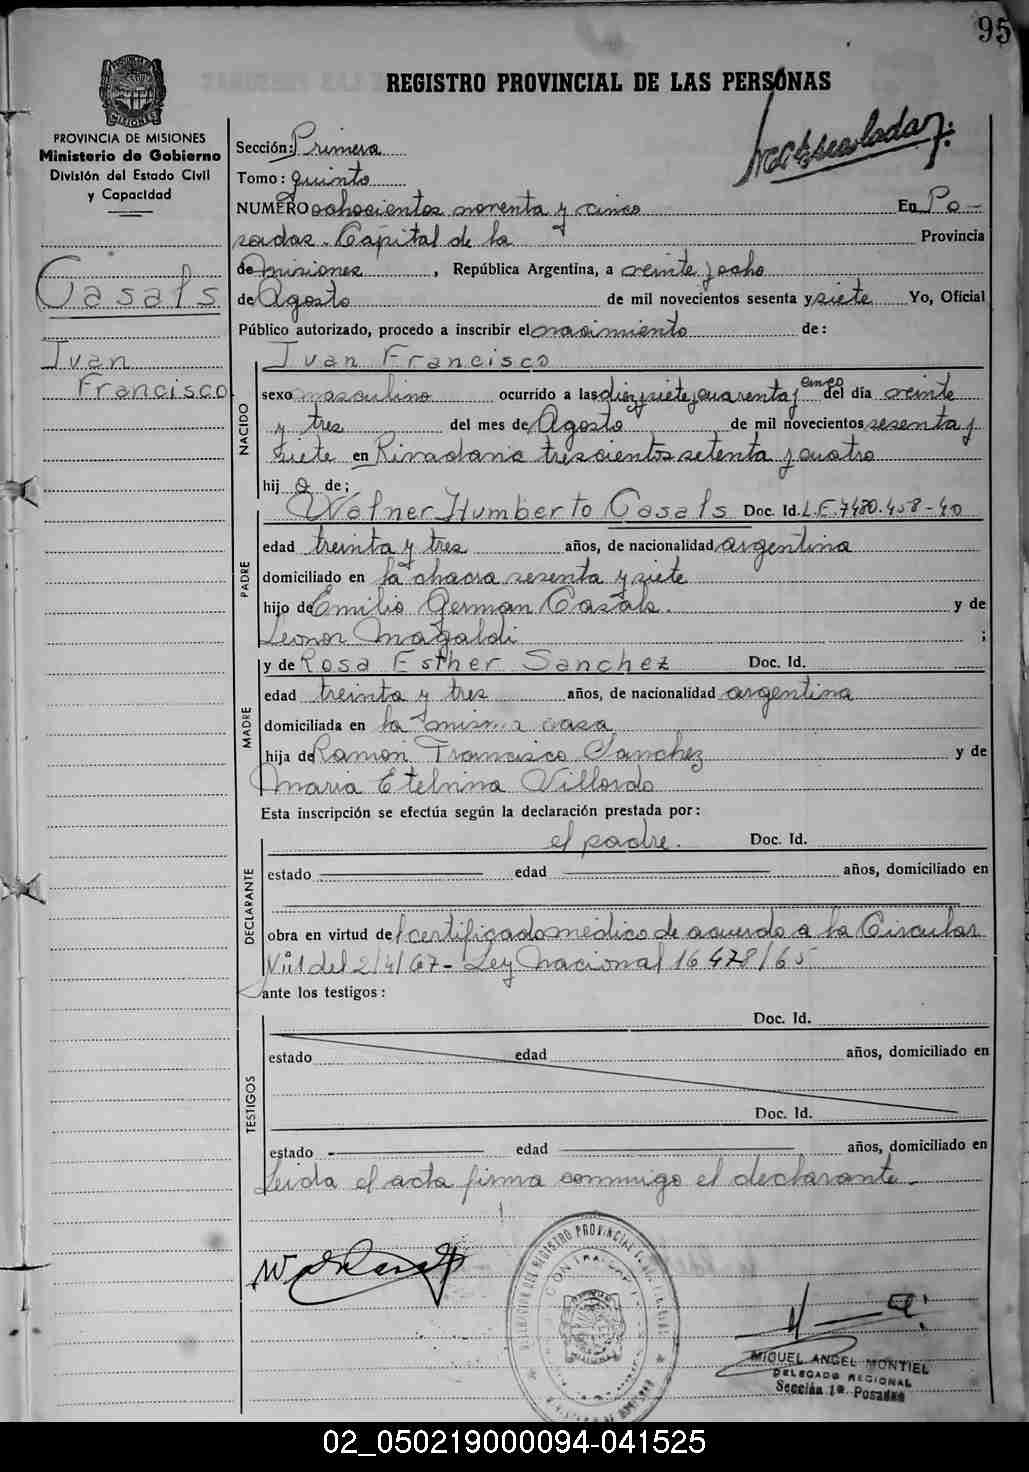 95
REGISTRO PROVINCIAL DE LAS PERSONAS
PROVINCIA DE MISIONES
Ministerio de Gobierno
División del Estado Civil
y Capacidad
Casals
Ivan
Francisco
Sección: Primera
Tomo: quinto
NUMERO ochocientos noventa y cinco En Po-
sadas. Capital de la Provincia
de Misiones, República Argentina, a veinte y ocho
de Agosto de mil novecientos sesenta y siete Yo, Oficial
Público autorizado, procedo a inscribir el nacimiento de:
Ivan Francisco
NACIDO
sexo masculino ocurrido a las diez y siete y cuarenta y cinco del día veinte
y tres del mes de Agosto de mil novecientos sesenta y
siete en Rivadavia trescientos setenta y cuatro
hijo de;
PADRE
Walner Humberto Casals Doc. Id. L.E. 7480.458-40
edad treinta y tres años, de nacionalidad argentina
domiciliado en la chacra sesenta y siete
hijo de Emilio German Casals. y de
Leonor Magaldi ;
MADRE
y de Rosa Esther Sanchez Doc. Id.
edad treinta y tres años, de nacionalidad argentina
domiciliada en la misma casa
hija de Ramon Francisco Sanchez y de
Maria Etelvina Villordo
Esta inscripción se efectúa según la declaración prestada por:
DECLARANTE
el padre. Doc. Id.
estado edad años, domiciliado en
obra en virtud del certificado médico de acuerdo a la Circular
Nº1 del 2/4/67- Ley Nacional 16478/65
ante los testigos:
TESTIGOS
Doc. Id.
estado edad años, domiciliado en
Doc. Id.
estado edad años, domiciliado en
Leida el acta firma conmigo el declarante.
MIGUEL ANGEL MONTIEL
DELEGADO REGIONAL
Sección 1ª Posadas
02_050219000094-041525